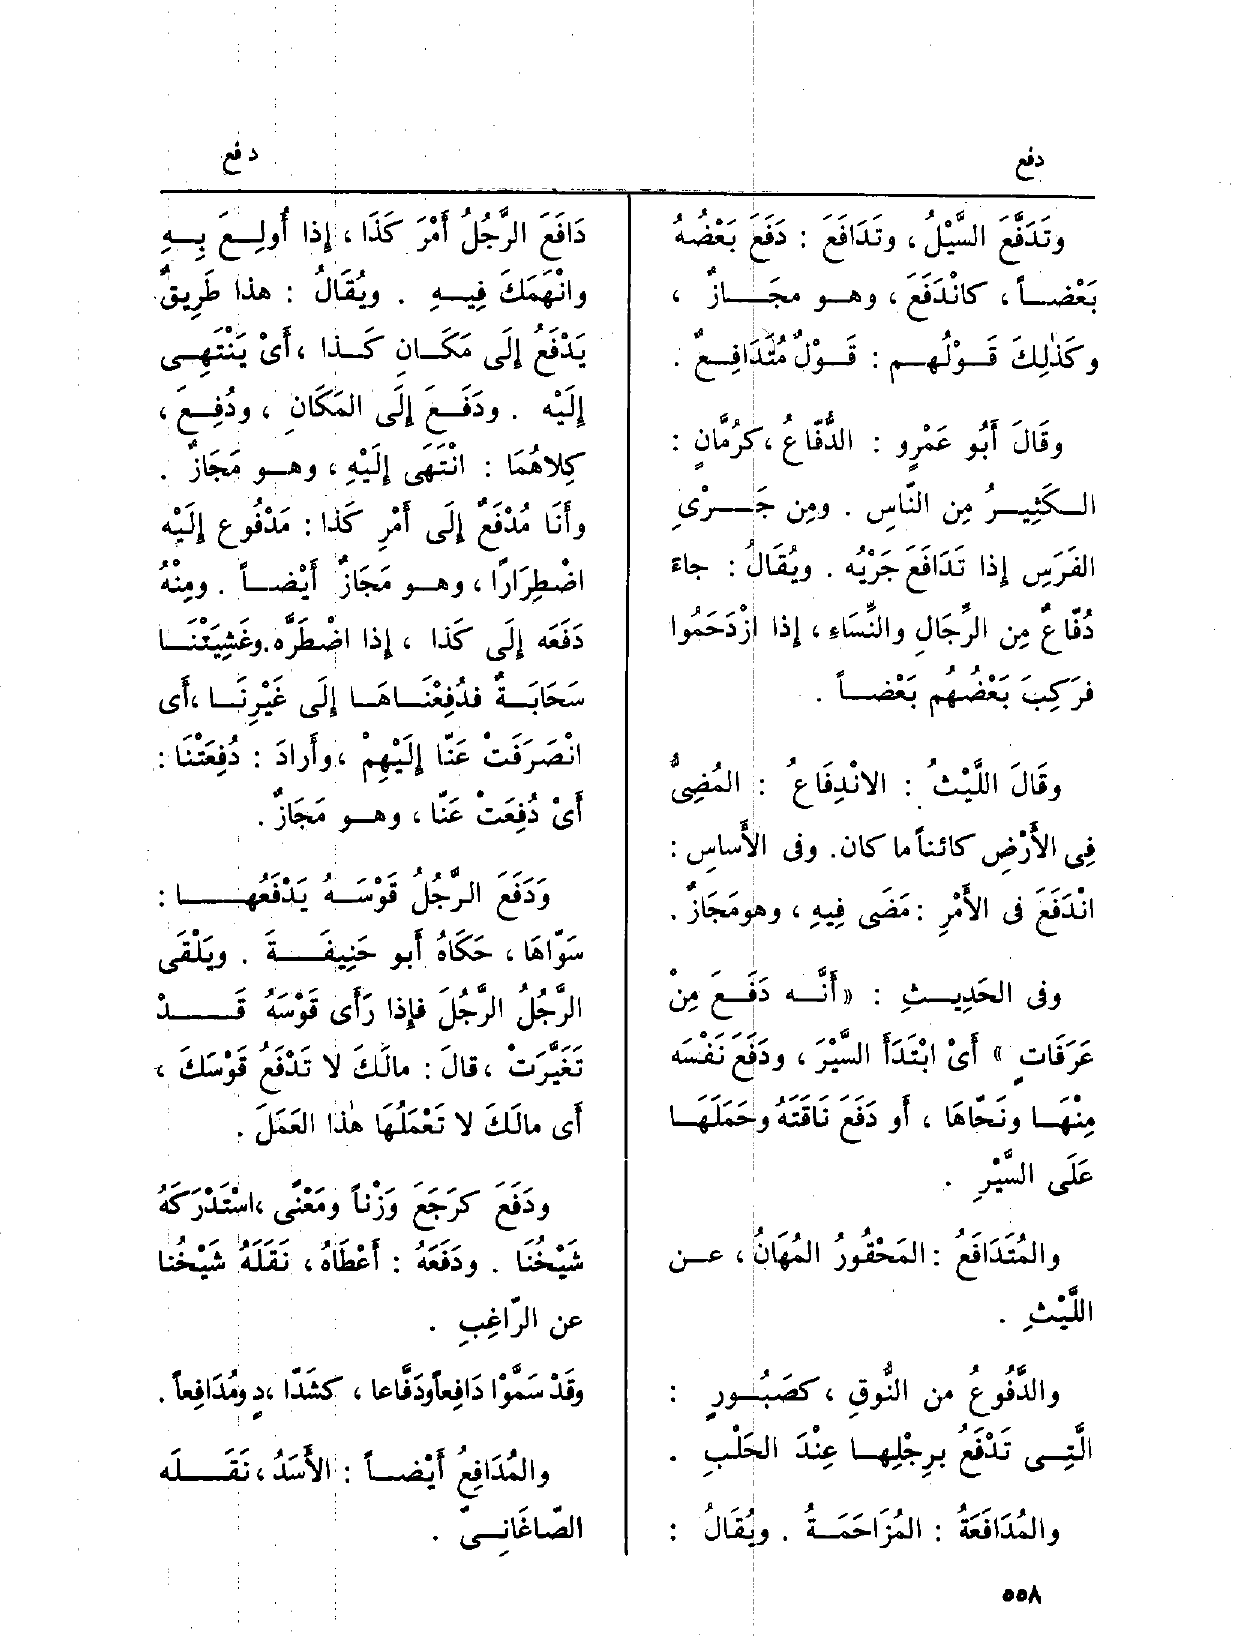 دفع
دفع
وتَدَفَّعَ السَّيْلُ ، وتَدَافَعَ : دَفَعَ بَعْضُهُ
بَعْضـاً ، كانْدَفَعَ ، وهـو مجَـازٌ ،
وكَذٰلِكَ قَـوْلُهـم : قَـوْلٌ مُتَدَافِـعٌ .
وقَالَ أَبُو عَمْرٍو : الدُّفّاعُ ،كرُمَّانٍ :
الـكَثِيـرُ مِن النّاسِ . ومِن جَـرْىِ
الفَرَسِ إِذا تَدَافَعَ جَرْيُه . ويُقَالُ : جاءَ
دُفّاعٌ مِن الرِّجَالِ والنِّسَاءِ ، إِذا ازْدَحَمُوا
فرَكِبَ بَعْضُهُم بَعْضـاً .
وقَالَ اللَّيْثُ : الانْدِفَاعُ : المُضِىُّ
فِى الأَرْضِ كائناً ما كان. وفى الأَساسِ :
انْدَفَعَ فى الأَمْرِ :مَضَى فِيهِ ، وهومَجَازٌ .
وفى الحَدِيـثِ : « أَنَّـه دَفَـعَ مِنْ
عَرَفَاتٍ » أَىْ ابْتَدَأَ السَّيْرَ ، ودَفَعَ نَفْسَه
مِنْهَـا ونَحّاهَا ، أَو دَفَعَ نَاقَتَهُ وحَمَلَهَـا
عَلَى السَّيْرِ .
والمُتَدَافَعُ :المَحْقُورُ المُهَانُ ، عـن
اللَّيْثِ .
والدَّفُوعُ من النُّوقِ ، كصَبُـورٍ :
الَّتِـى تَدْفَعُ بِرِجْلِهـا عِنْدَ الحَلْبِ .
والمُدَافَعَةُ : المُزَاحَمَـةُ . ويُقَالُ :
دَافَعَ الرَّجُلُ أَمْرَ كَذَا ، إِذا أُولِـعَ بِـهِ
وانْهَمَكَ فِيـهِ . ويُقَالُ : هذا طَرِيقٌ
يَدْفَعُ إِلَى مَكَـانِ كَـذا ،أَىْ يَنْتَهِـى
إِلَيْهِ . ودَفَـعَ إِلَى المَكَانِ ، ودُفِـعَ ،
كِلاهُمَا : انْتَهَى إِلَيْهِ ، وهـو مَجَازٌ .
وأَنَا مُدْفَعٌ إِلَى أَمْرِ كَذَا : مَدْفُوع إِلَيْه
اضْطِرَارًا ، وهـو مَجَازٌ أَيْضـاً . ومِنْهُ
دَفَعَه إِلَى كَذا ، إِذا اضْطَرَّه.وغَشِيَتْنَـا
سَحَابَـةٌ فدُفِعْنَـاهَـا إِلَى غَيْرِنَـا ،أَى
انْصَرَفَتْ عَنّا إِلَيْهِمْ ،وأَرادَ : دُفِعَتْنَا :
أَىْ دُفِعَتْ عَنّا ، وهـو مَجَازٌ .
وَدَفَعَ الرَّجُلُ قَوْسَـهُ يَدْفَعُهـا :
سَوّاهَا ، حَكَاهُ أَبو حَنِيفَـةَ . ويَلْقَى
الرَّجُلُ الرَّجُلَ فإِذا رَأَى قَوْسَهُ قَـدْ
تَغَيَّرَتْ ،قالَ : مالَكَ لا تَدْفَعُ قَوْسَكَ ،
أَى مالَكَ لا تَعْمَلُهَا هٰذا العَمَلَ .
ودَفَعَ كرَجَعَ وَزْناً ومَعْنًى ،اسْتَدْرَكَهُ
شَيْخُنَا . ودَفَعَهُ : أَعْطَاهُ ، نَقَلَهُ شَيْخُنا
عن الرّاغِبِ .
وقَدْ سَمَّوْا دَافِعاًودَفّاعا ، كشَدّا ،دٍ ومُدَافِعاً .
والمُدَافِعُ أَيْضـاً : الأَسَدُ ، نَقَـلَه
الصّاغَانِـىّ .
٥٥٨